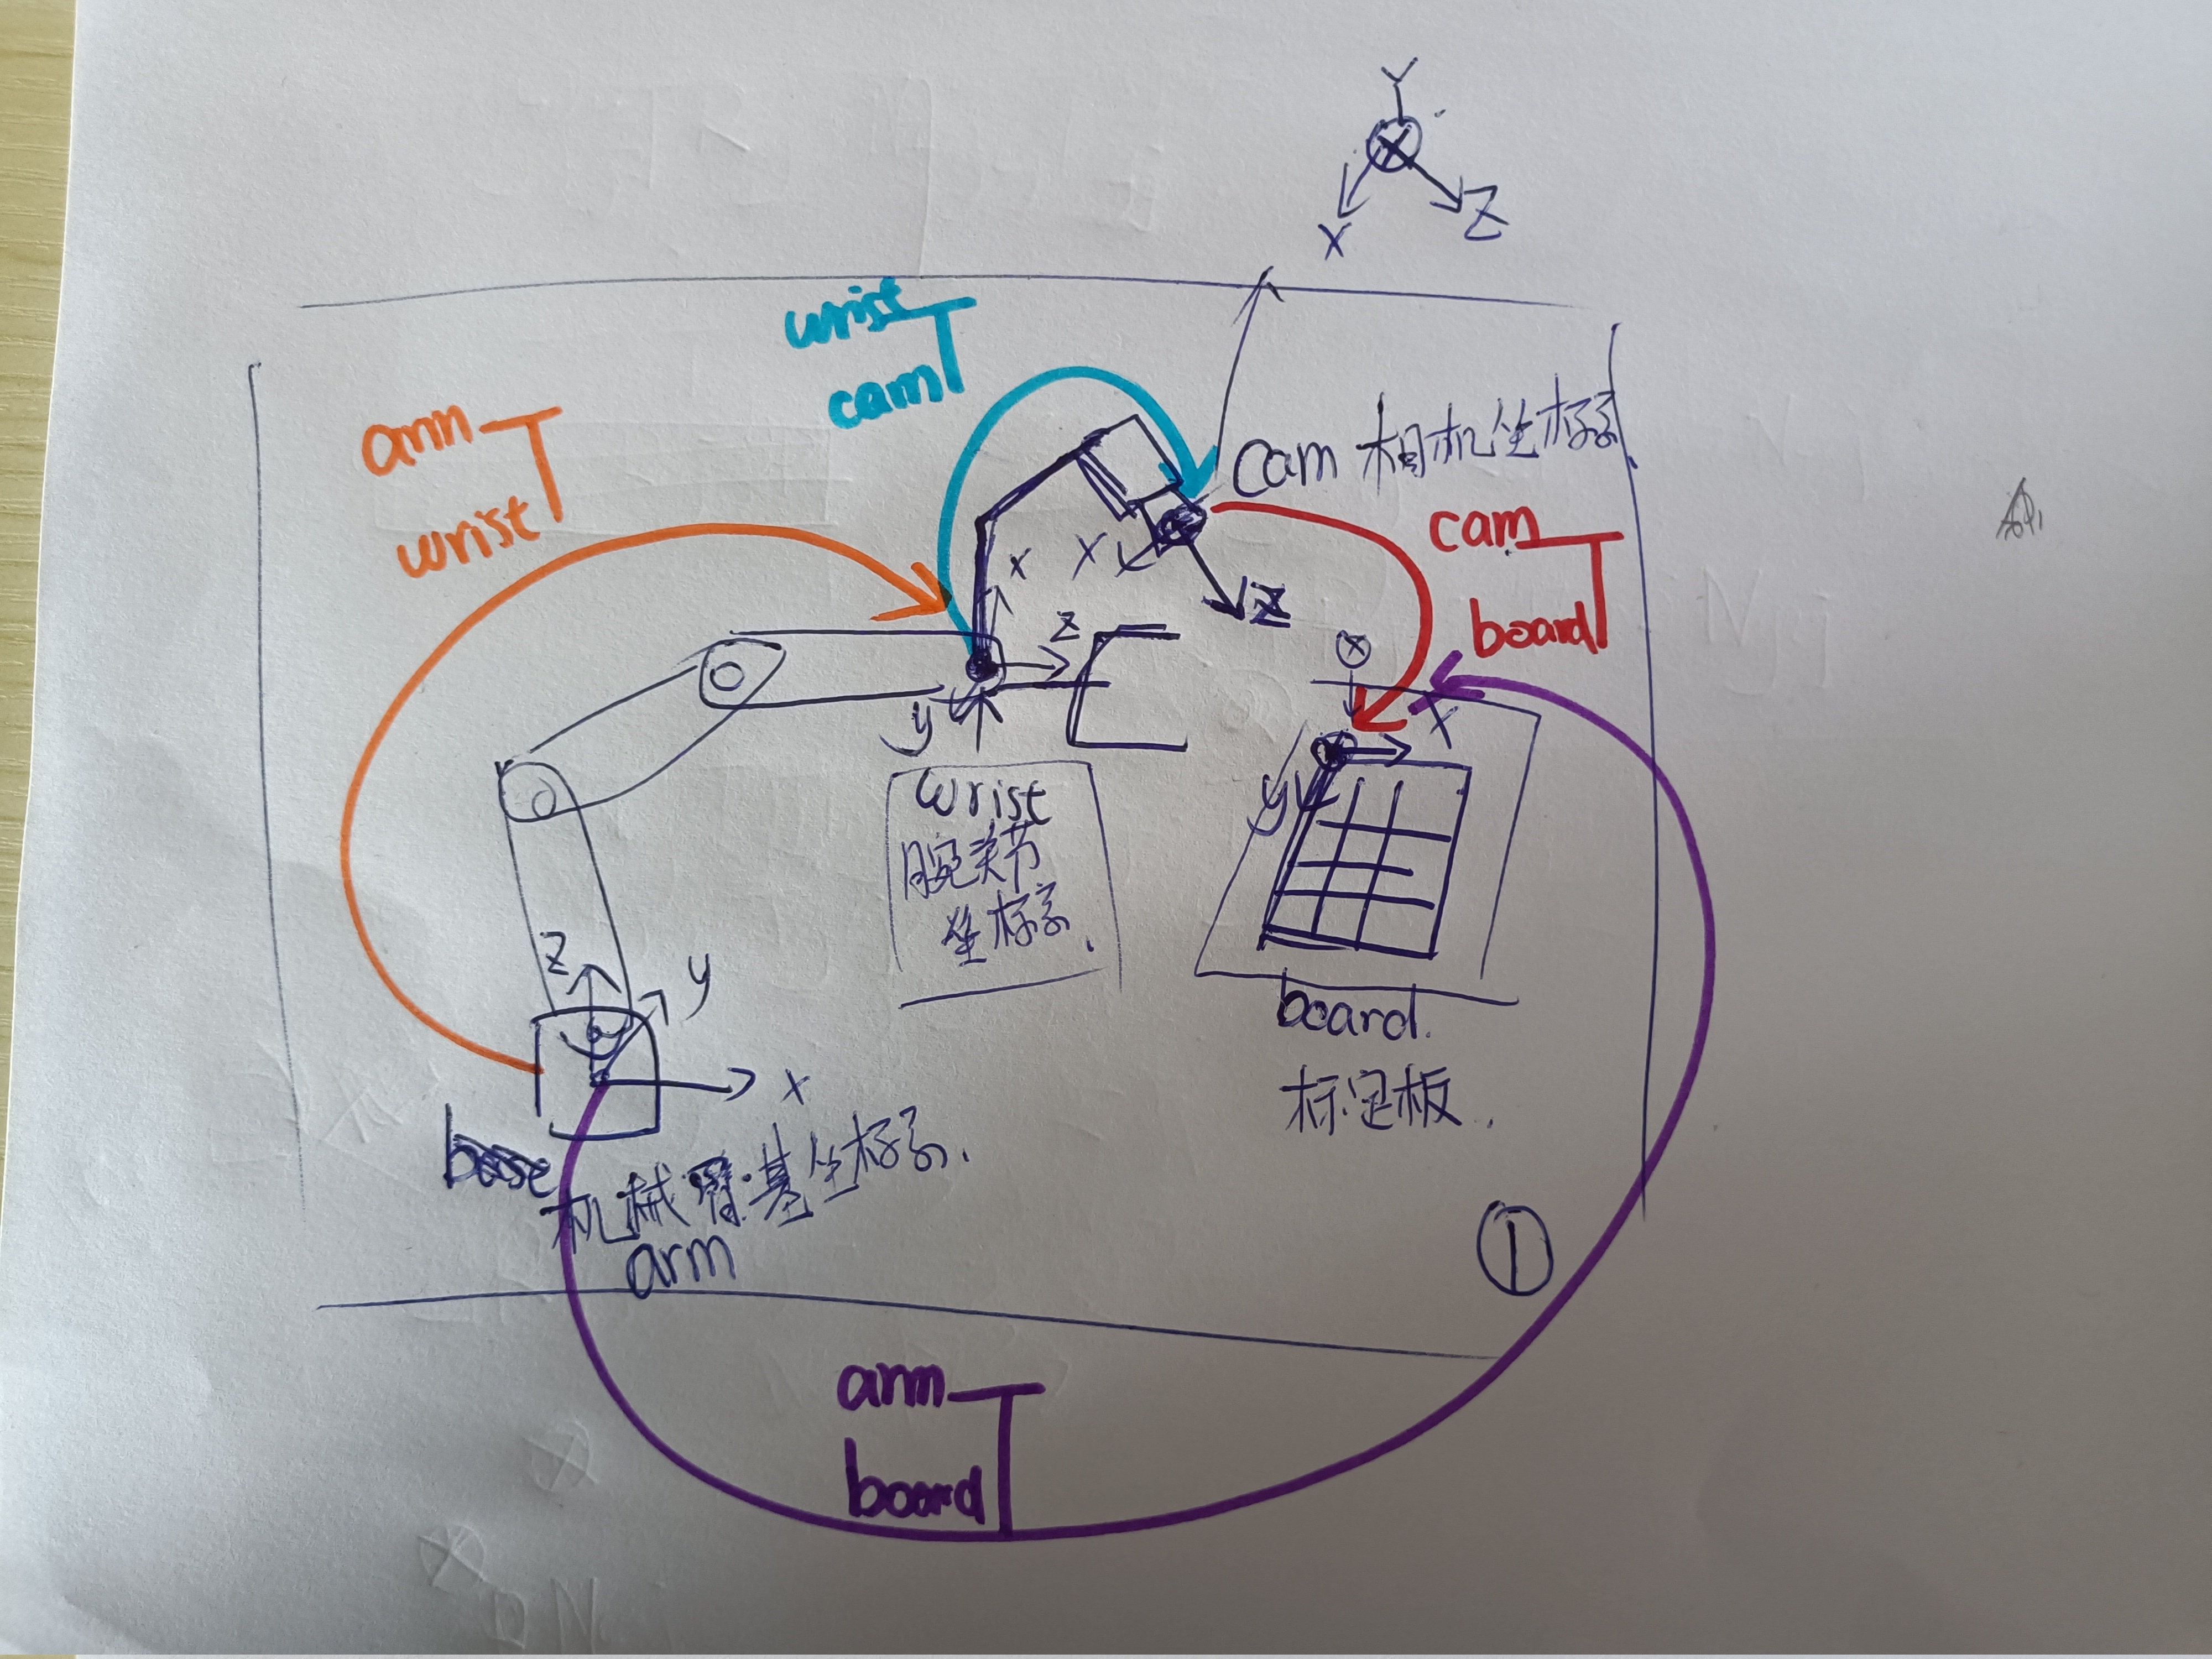 Y
X
Z
wrist T
cam
arm T
wrist
cam 相机坐标系
cam T
board
X
X
Z
Z
y
X
wrist
腕关节
坐标系.
y
board.
标定板.
Z
y
X
base
机械臂·基坐标系.
arm
①
arm T
board